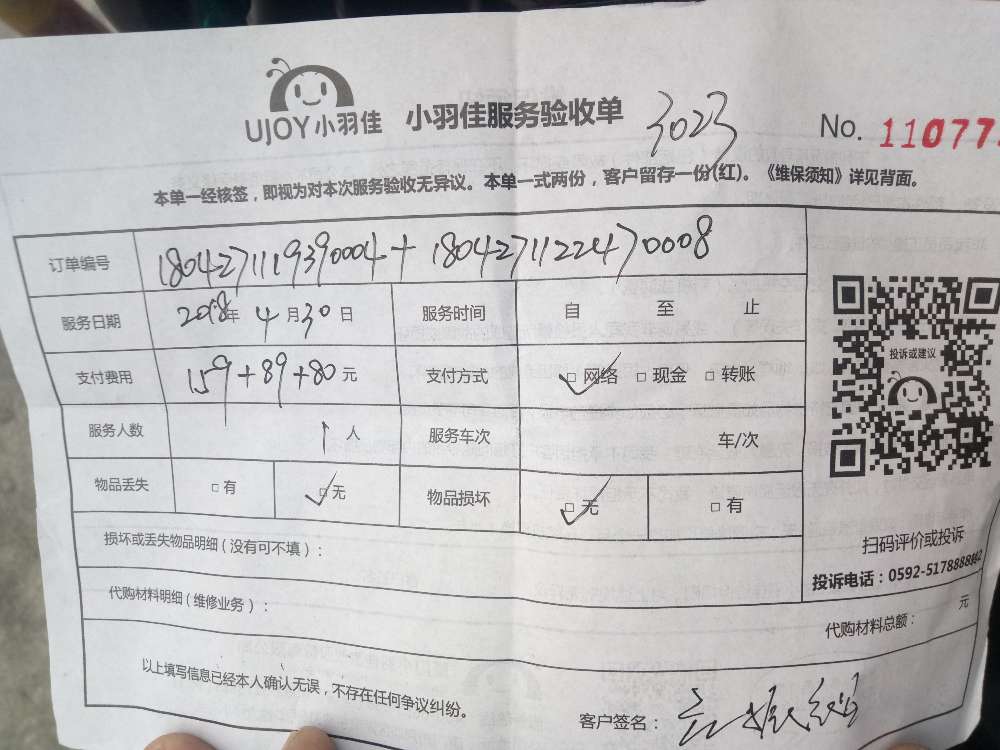 UJOY小羽佳 小羽佳服务验收单 3023 No. 11077
本单一经核签，即视为对本次服务验收无异议。本单一式两份，客户留存一份(红)。《维保须知》详见背面。
订单编号 1804271119390004+1804271122470008
服务日期 2018年 4月30日 服务时间 自 至 止
支付费用 159+89+80元 支付方式 ✓□网络 □现金 □转账
服务人数 1人 服务车次 车/次
物品丢失 □有 ✓□无 物品损坏 ✓□无 □有
投诉或建议
扫码评价或投诉
投诉电话：0592-5178888
损坏或丢失物品明细（没有可不填）：
代购材料明细（维修业务）：
代购材料总额： 元
以上填写信息已经本人确认无误，不存在任何争议纠纷。
客户签名：